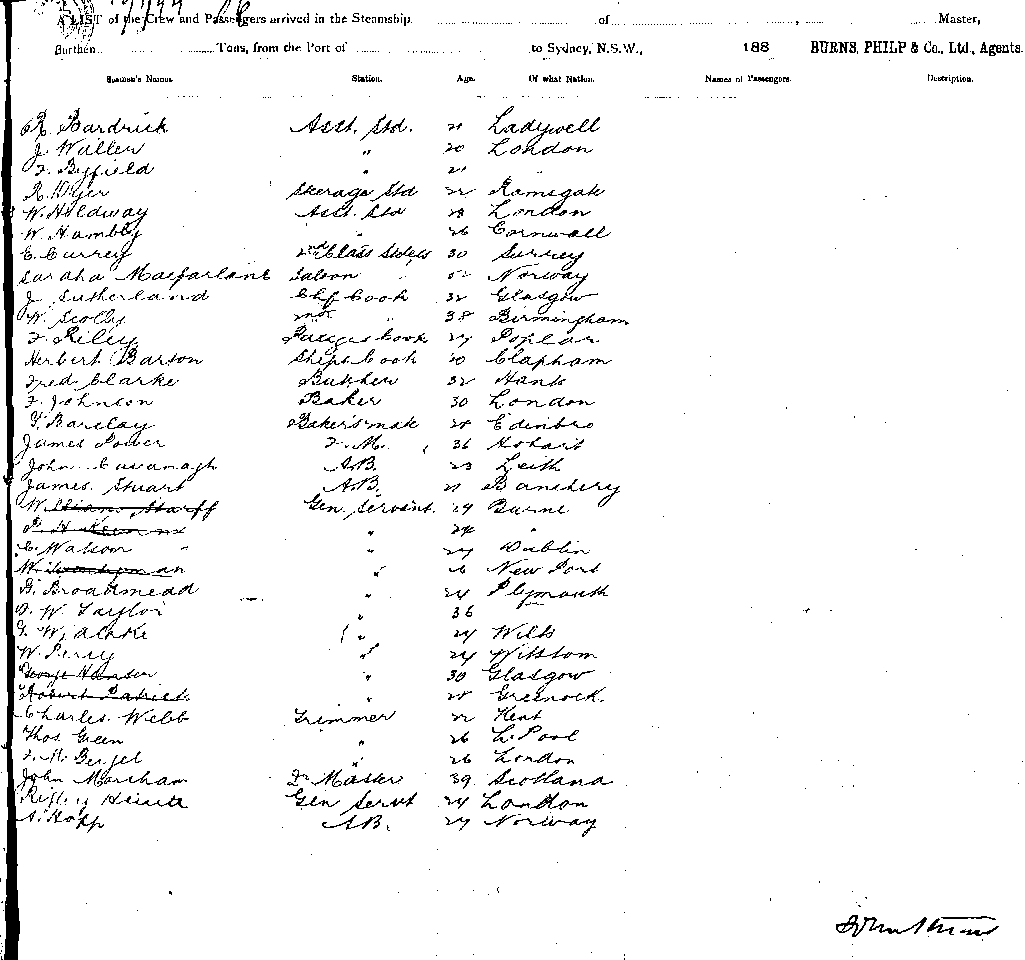 A LIST of the Crew and Passengers arrived in the Steamship of , Master,
Burthen Tons, from the Port of to Sydney, N.S.W., 188 BURNS, PHILP & Co., Ltd., Agents.
Seamen's Names. Station. Age. Of what Nation. Names of Passengers. Description.
R. Bardrick Asst. Std. 21 Ladywell
J. Waller " 20 London
F. Byfield " 21
R. Dyer Steerage Std 22 Ramsgate
W. Holdway Asst. Std 28 London
W. Hambly 26 Cornwall
C. Currey 2nd Class Stdess 30 Surrey
Sarah Macfarlane Saloon " 52 Norway
J. Sutherland Chf Cook 32 Glasgow
W. Scolby 2nd " 38 Birmingham
F. Riley Passgrs Cook 27 Poplar
Herbert Barson Ships Cook 30 Clapham
Fred Clarke Butcher 32 Hants
F. Johnson Baker 30 London
G. Barclay Bakers mate 28 Edinbro
James Power F. M. 36 Hobart
John Cavanagh A.B. 23 Leith
James Stuart A.B. 21 Banchery
William Starff Gen. Servant 29 Burne
" 24 "
C. Watson " " 24 Dublin
" 26 New Port
G. Broadmead " 24 Plymouth
F. W. Taylor " 36
" 24 Wilts
W. Percy " 24
George Hanson " 30 Glasgow
Robert Patrick " 28 Greenock
Charles Webb Trimmer 22 Kent
Thos Green " 26 L. Pool
" 26 London
John Marsham Qr Master 39 Scotland
Gen Servt 24 London
A. Hopp A.B. 27 Norway